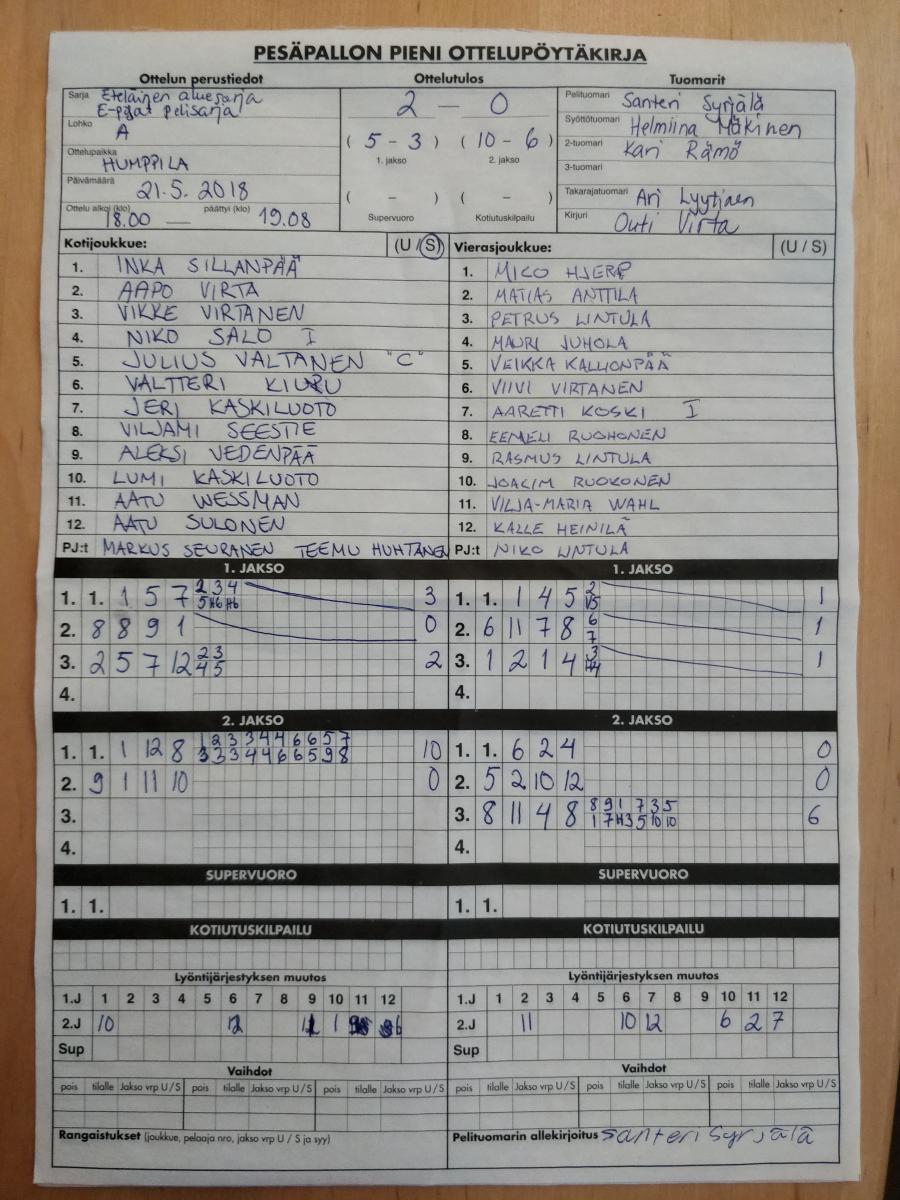 PESÄPALLON PIENI OTTELUPÖYTÄKIRJA
Ottelun perustiedot Ottelutulos Tuomarit
Sarja Eteläinen aluesarja
E-pojat pelisarja
Lohko A
Ottelupaikka HUMPPILA
Päivämäärä 21.5. 2018
Ottelu alkoi (klo) 18.00 — päättyi (klo) 19.08
2 — 0
( 5 - 3 ) ( 10 - 6 )
1. jakso 2. jakso
( – ) ( – )
Supervuoro Kotiutuskilpailu
Pelituomari Santeri Syrjälä
Syöttötuomari Helmiina Mäkinen
2-tuomari Kari Rämö
3-tuomari
Takarajatuomari Ari
Kirjuri Outi Virta
Kotijoukkue: (U / S)
1. INKA SILLANPÄÄ
2. AAPO VIRTA
3. VIKKE VIRTANEN
4. NIKO SALO I
5. JULIUS VALTANEN "C"
6. VALTTERI KIURU
7. JERI KASKILUOTO
8. VILJAMI SEESTIE
9. ALEKSI VEDENPÄÄ
10. LUMI KASKILUOTO
11. AATU WESSMAN
12. AATU SULONEN
PJ:t MARKUS SEURANEN TEEMU HUHTANEN
Vierasjoukkue: (U / S)
1. MICO HJERP
2. MATIAS ANTTILA
3. PETRUS LINTULA
4. MAURI JUHOLA
5. VEIKKA KALLIONPÄÄ
6. VIIVI VIRTANEN
7. AARETTI KOSKI I
8. EEMELI RUOHONEN
9. RASMUS LINTULA
10. JOACIM RUOKONEN
11. VILJA-MARIA WAHL
12. KALLE HEINILÄ
PJ:t NIKO LINTULA
1. JAKSO
1. 1. 1 5 7 2 3 4 3
5 H6 H6
2. 8 8 9 1 0
3. 2 5 7 12 2 3 2
4 5
4.
1. JAKSO
1. 1. 1 4 5 2 1
V5
2. 6 11 7 8 6 1
7
3. 1 2 1 4 3 1
H4
4.
2. JAKSO
1. 1. 1 12 8 1 2 3 3 4 4 6 6 5 7 10
3 3 3 4 4 6 6 5 9 8
2. 9 1 11 10 0
3.
4.
2. JAKSO
1. 1. 6 2 4 0
2. 5 2 10 12 0
3. 8 11 4 8 8 9 1 7 3 5 6
1 7 H3 5 10 10
4.
SUPERVUORO
1. 1.
SUPERVUORO
1. 1.
KOTIUTUSKILPAILU
KOTIUTUSKILPAILU
Lyöntijärjestyksen muutos
1.J 1 2 3 4 5 6 7 8 9 10 11 12
2.J 10 12 1 6
Sup
Lyöntijärjestyksen muutos
1.J 1 2 3 4 5 6 7 8 9 10 11 12
2.J 11 10 12 6 2 7
Sup
Vaihdot
pois tilalle Jakso vrp U/S pois tilalle Jakso vrp U/S pois tilalle Jakso vrp U/S
Vaihdot
pois tilalle Jakso vrp U/S pois tilalle Jakso vrp U/S pois tilalle Jakso vrp U/S
Rangaistukset (joukkue, pelaaja nro, jakso vrp U / S ja syy)
Pelituomarin allekirjoitus Santeri Syrjälä